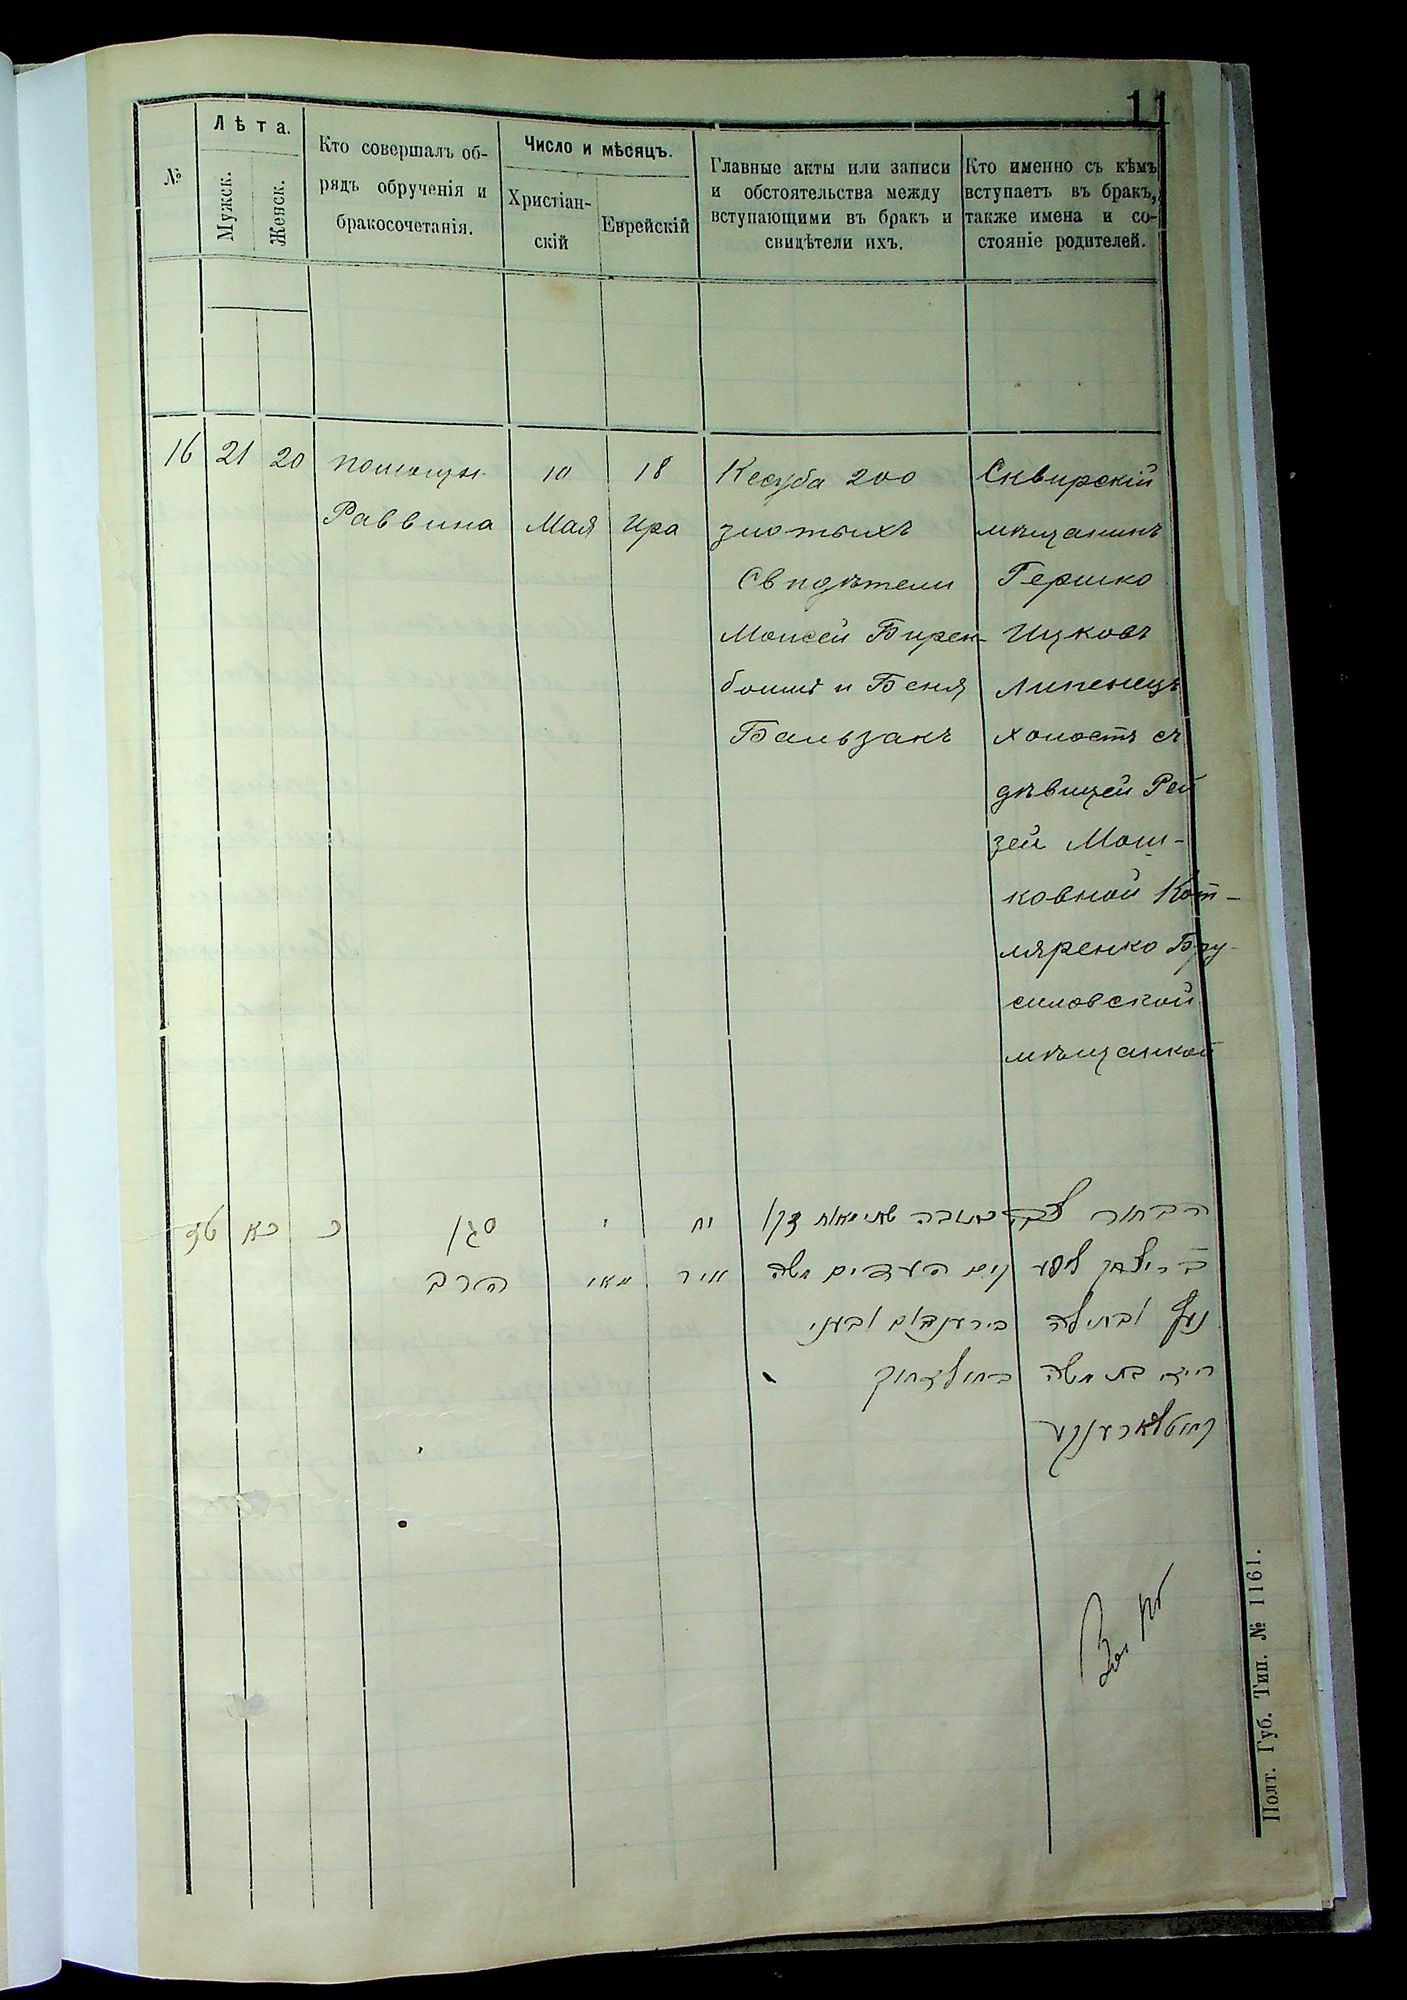 11
№
Лѣта.
Мужск.
Женск.
Кто совершалъ об-
рядъ обрученія и
бракосочетанія.
Число и мѣсяцъ.
Христіан-
скій
Еврейскій
Главные акты или записи
и обстоятельства между
вступающими въ бракъ и
свидѣтели ихъ.
Кто именно съ кѣмъ
вступаетъ въ бракъ,
также имена и со-
стояніе родителей.
16
21
20
помощн.
Раввина
10
Мая
18
Ира
Кесуба 200
злотыхъ
Свидѣтели
Моисей Бирен-
боимъ и Беня
Бальзакъ
Сквирскій
мѣщанинъ
Гершко
Ицковъ
Липенецъ
холостъ съ
дѣвицей Рей
зей Мош-
ковной Кот-
ляренко Бру-
силовской
мѣщанкой
טז
כא
כ
סגן
הרב
י
מאי
יח
אייר
כתובה
העדים משה
בירענבוים
הבחור
ובתולה
רייזי בת משה
קאטליארענקע
Полт. Губ. Тип. № 1161.